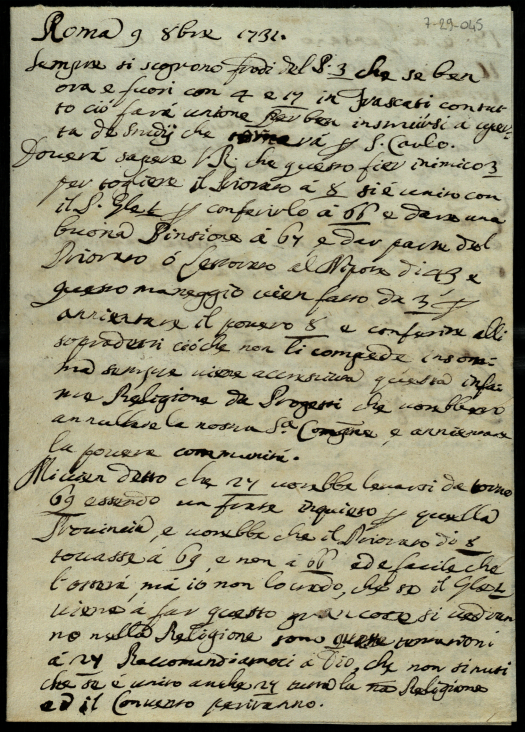 7-29-045
Roma 9 8bre 1731.
Sempre si scoprono frodi del P. 3 che se ben
ora e fuori con 4 e 17 in Frascati con tut-
to ciò fará unione per ben instruirsi á aper-
ta de Studij che tornerá S. Carlo.
Doverá sapere V.R. che questo fier inimico 3
per togliere il Priorato á 8 si é unito con
il P. Glet conferirlo á 66 e dare una
buona Pinsione á 67 e dar parte del
Priorato ó Lettorato al Nipote di 43 e
questo maneggio vien fatto da 3
annientare il povero 8 e conferire alli
sopradetti ció che non li compede insom-
ma sempre viene accresciuta questa infa-
me Religione da Progetti che vorebbero
annullare la nostra Sa. Comgne e annientare
la povera communitá.
Mi vien detto che 27 vorebbe levarsi da torno
69 essendo un frate inquieto quella
Provincia, e vorebbe che il Priorato di 8
toccasse á 69, e non á 66 ed e facile che
l'otterá, má io non lo credo, che se il Glet
viene á far questo gran cose si vedran-
no nella Religione sono tentationi
á 27 Raccomandiamoci á Dio, che non si muti
che se é unito anche 27 tutta la nra Religione
ed il Convento periranno.